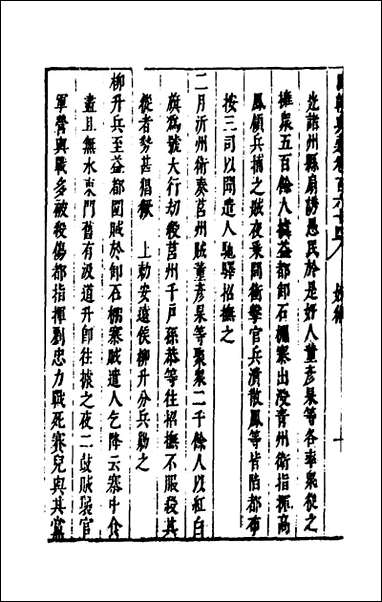 國朝典彙卷之百六十四 妖術 十
迄諸州縣扇誘愚民於是奸人董彥杲等各率眾從之
擁眾五百餘人據益都卸石棚寨出沒青州衛指揮高
鳳領兵捕之賊夜乘間衝擊官兵潰散鳳等皆陷都布
按三司以聞遣人馳驛招撫之
二月沂州衛奏莒州賊董彥杲等聚眾二千餘人以紅白
旗為號大行劫殺莒州千戶孫恭等往招撫不服殺其
從者勢甚猖獗 上勑安遠侯柳升分兵勦之
柳升兵至益都圍賊於卸石棚寨賊遣人乞降云寨中食
盡且無水東門舊有汲道升即往據之夜二鼓賊襲官
軍營與戰多被殺傷都指揮劉忠力戰死賽兒與其黨